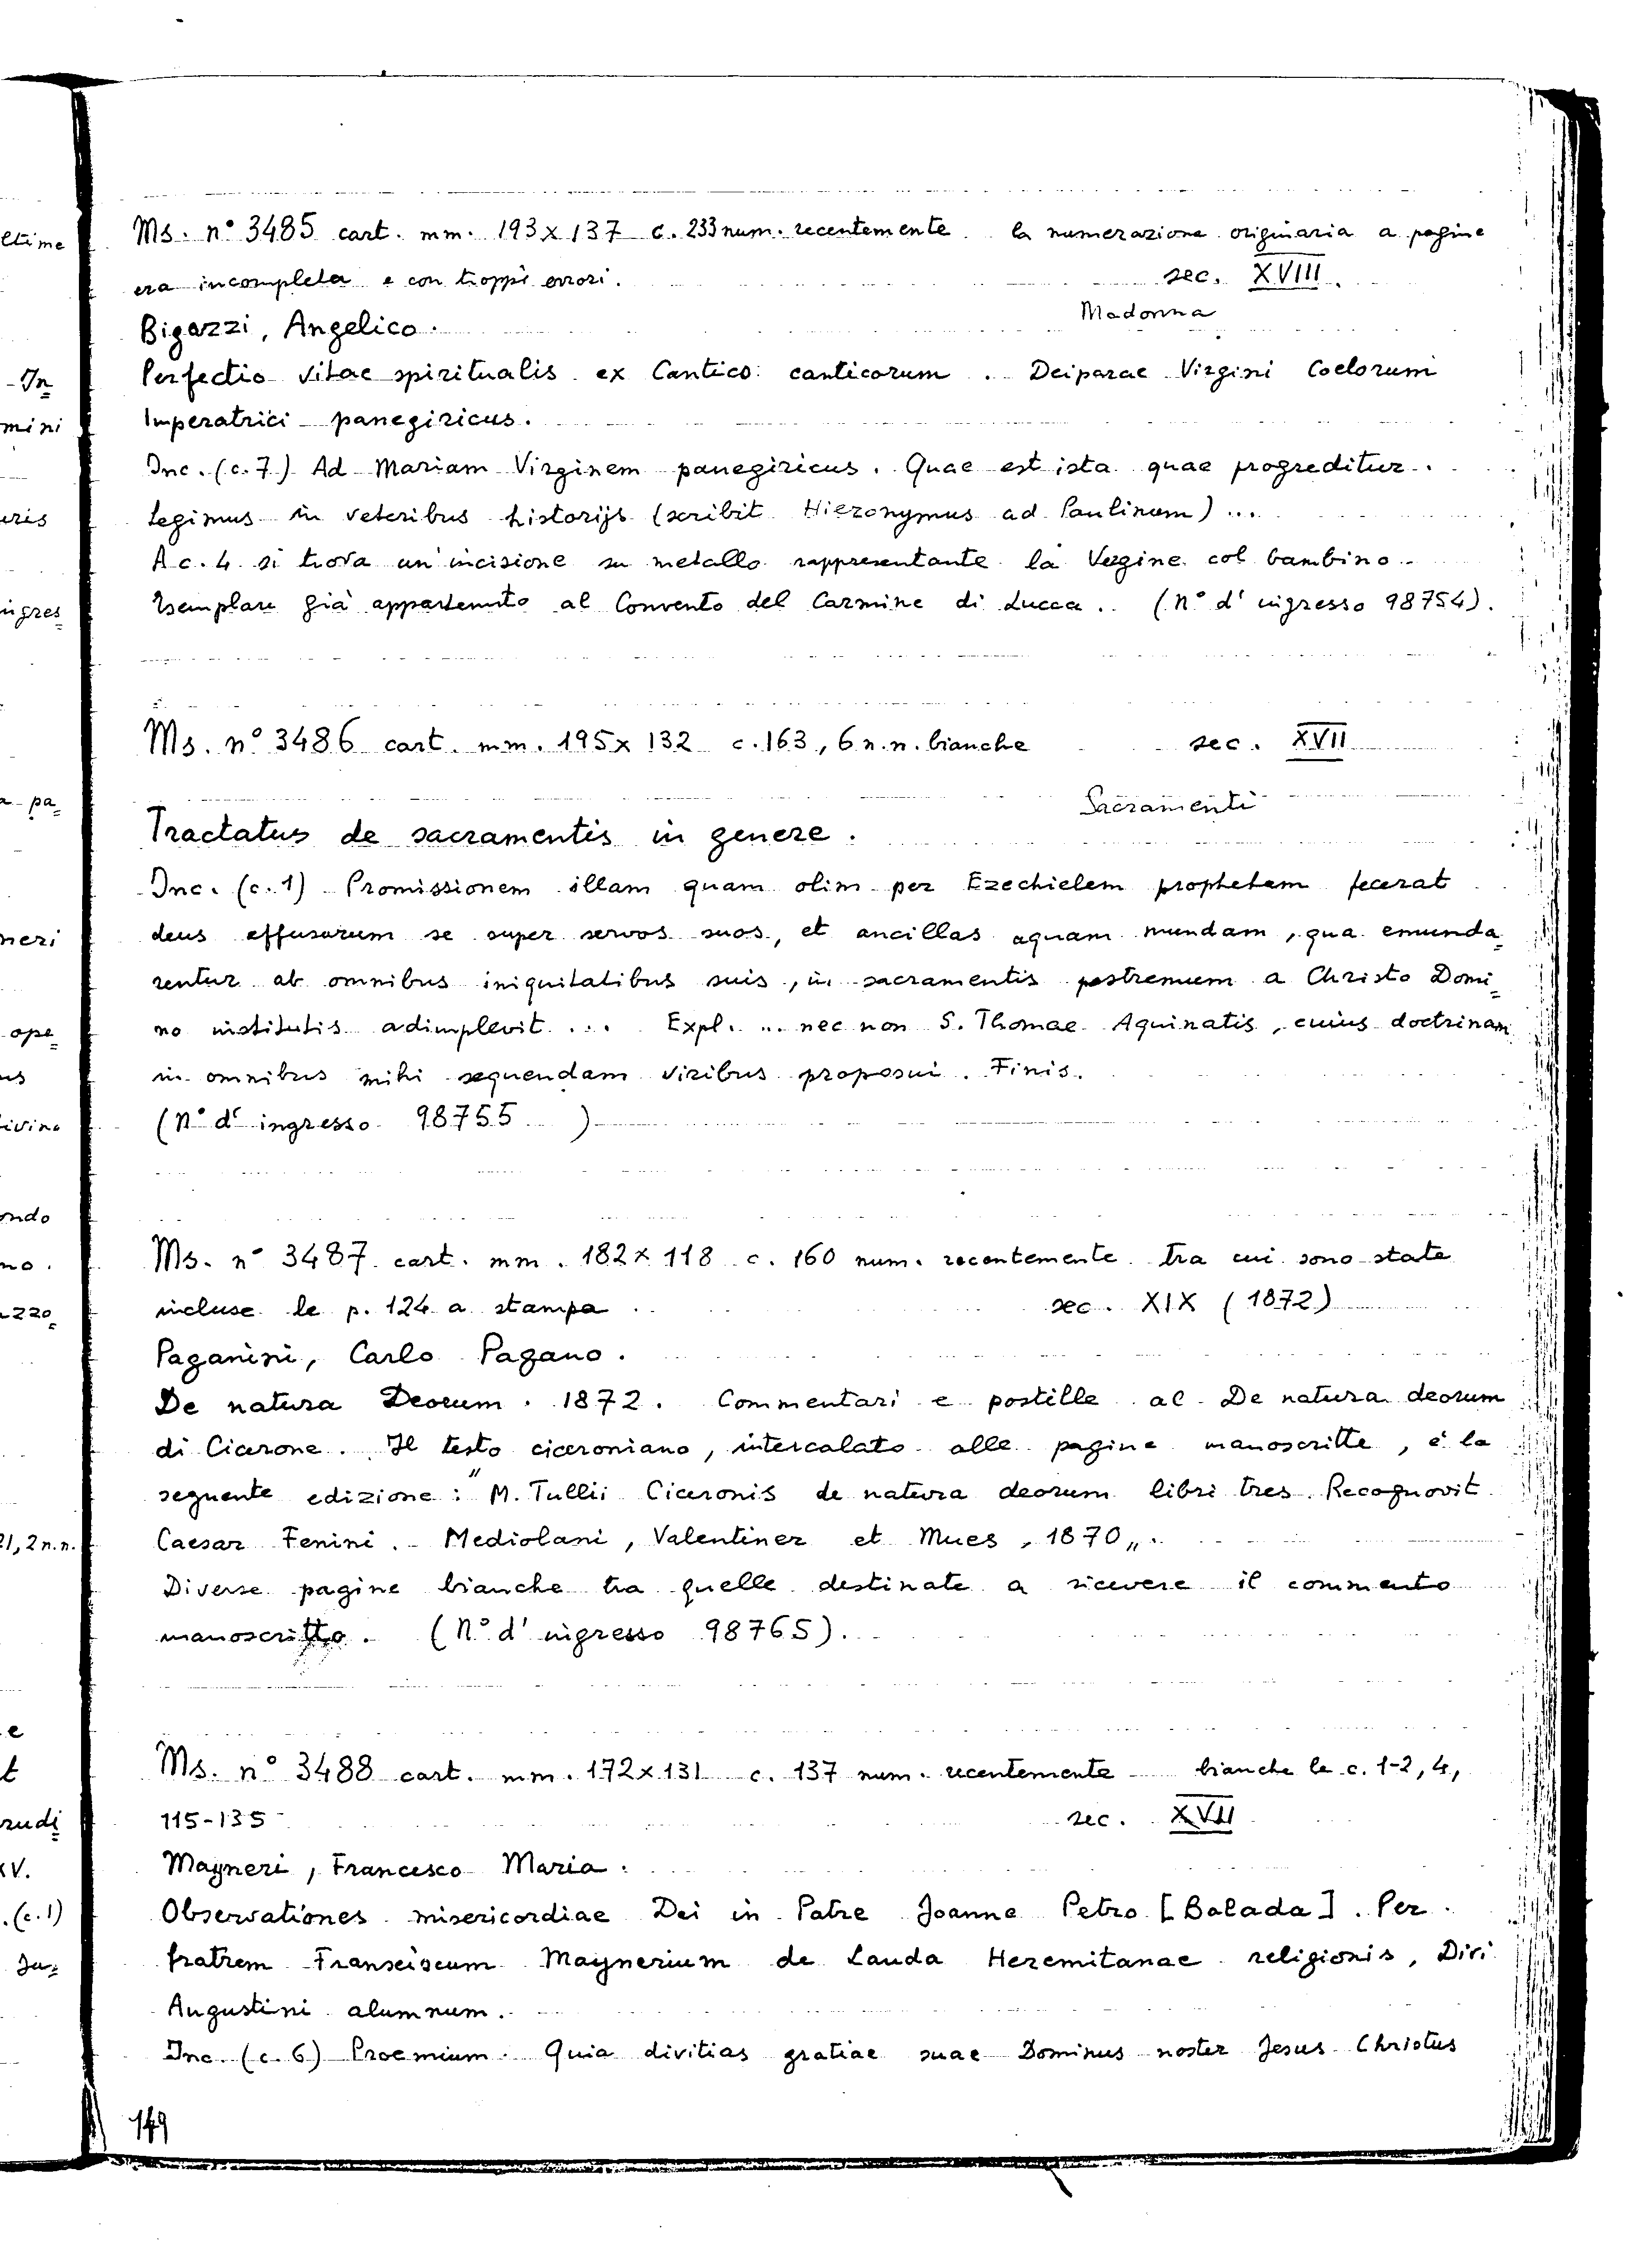 Ms. n° 3485 cart. mm. 193x137 c. 233 num. recentemente la numerazione originaria a pagine
era incompleta e con troppi errori. sec. XVIII.
Madonna
Bigazzi, Angelico.
Perfectio vitae spiritualis ex Cantico canticorum. Deiparae Virgini Coelorum
Imperatrici panegiricus.
Inc. (c. 7) Ad Mariam Virginem panegiricus. Quae est ista quae progreditur.
Legimus in veteribus historijs (scribit Hieronymus ad Paulinum) ...
A c. 4 si trova un'incisione su metallo rappresentante la Vergine col bambino.
Esemplare già appartenuto al Convento del Carmine di Lucca.. (N° d'ingresso 98754).
Ms. n° 3486 cart. mm. 195x132 c. 163, 6 n.n. bianche sec. XVII
Sacramenti
Tractatus de sacramentis in genere.
Inc. (c. 1) Promissionem illam quam olim per Ezechielem prophetam fecerat
deus effusurum se super servos suos, et ancillas aquam mundam, qua emunda=
rentur ab omnibus iniquitatibus suis, in sacramentis postremum a Christo Domi=
no institutis adimplevit ... Expl. ... nec non S. Thomae Aquinatis, cuius doctrinam
in omnibus mihi sequendam viribus proposui. Finis.
(N° d'ingresso 98755 )
Ms. n° 3487 cart. mm. 182x118 c. 160 num. recentemente tra cui sono state
incluse le p. 124 a stampa. sec. XIX (1872)
Paganini, Carlo Pagano.
De natura Deorum. 1872. Commentari e postille al De natura deorum
di Cicerone. Il testo ciceroniano, intercalato alle pagine manoscritte, è la
seguente edizione: "M. Tullii Ciceronis de natura deorum libri tres. Recognovit
Caesar Fenini. Mediolani, Valentiner et Mues, 1870".
Diverse pagine bianche tra quelle destinate a ricevere il commento
manoscritto. (N° d'ingresso 98765).
Ms. n° 3488 cart. mm. 172x131 c. 137 num. recentemente bianche le c. 1-2, 4,
115-135 sec. XVII
Mayneri, Francesco Maria.
Observationes misericordiae Dei in Patre Joanne Petro [Balada]. Per
fratrem Franciscum Maynerium de Lauda Heremitanae religionis, Divi
Augustini alumnum.
Inc. (c. 6) Proemium. Quia divitias gratiae suae Dominus noster Jesus Christus
149